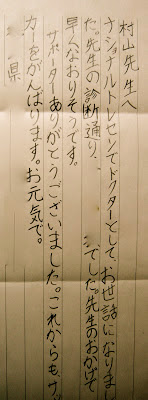 村山先生へ
ナショナルトレセンでドクターとして、お世話になりまし
た。先生の診断通り、
でした。先生のおかげで
早くなおりそうです。
サポーターありがとうございました。これからも、サッ
カーをがんばります。お元気で。
県